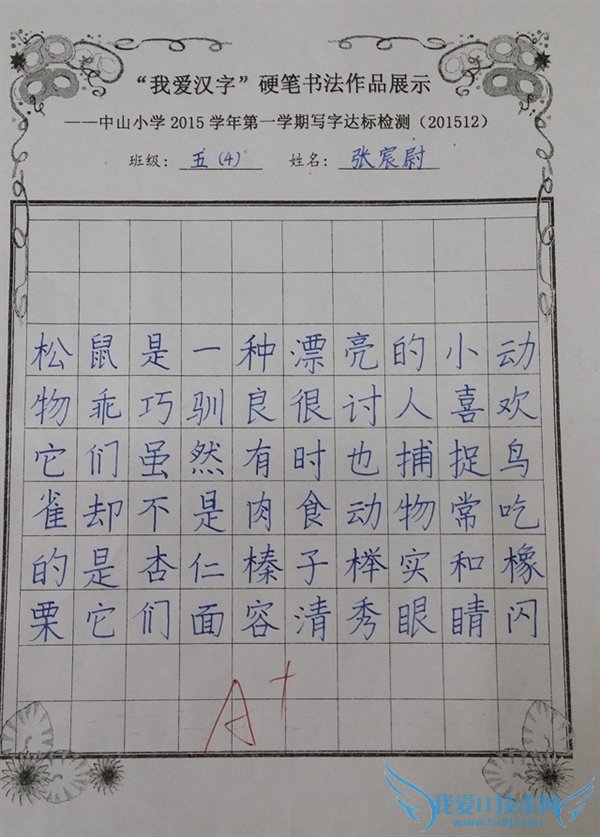 “我爱汉字”硬笔书法作品展示
——中山小学2015学年第一学期写字达标检测（201512）
班级：五(4) 姓名：张宸尉
松鼠是一种漂亮的小动
物乖巧驯良很讨人喜欢
它们虽然有时也捕捉鸟
雀却不是肉食动物常吃
的是杏仁榛子榉实和橡
栗它们面容清秀眼睛闪
A+
我爱IT技术网